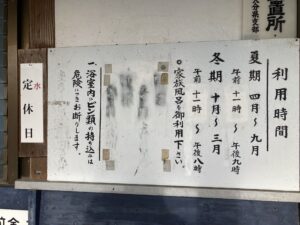 利用時間
夏期 四月〜九月
午前十一時〜午後九時
冬期 十月〜三月
午前十一時〜午後八時
◎家族風呂を御利用下さい。
一、浴室内へビン類の持ち込みは
危険につきお断りします。
水
定休日
置所
大分県支部